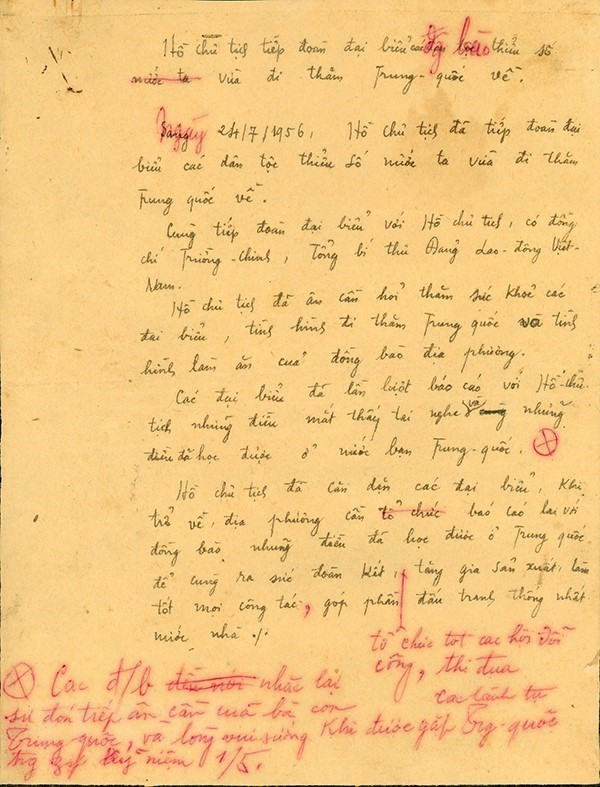 Hồ chủ tịch tiếp đoàn đại biểu các dân tộc thiểu số
nước ta vừa đi thăm Trung-quốc về.
Ngày 24/7/1956, Hồ chủ tịch đã tiếp đoàn đại
biểu các dân tộc thiểu số nước ta vừa đi thăm
Trung quốc về.
Cùng tiếp đoàn đại biểu với Hồ chủ tịch, có đồng
chí Trường-Chinh, Tổng bí thư Đảng Lao-động Việt-
Nam.
Hồ chủ tịch đã ân cần hỏi thăm sức khoẻ các
đại biểu, tình hình đi thăm Trung quốc và tình
hình làm ăn của đồng bào địa phương.
Các đại biểu đã lần lượt báo cáo với Hồ-chủ-
tịch những điều mắt thấy tai nghe và những
điều đã học được ở nước bạn Trung-quốc.
Hồ chủ tịch đã căn dặn các đại biểu, khi
trở về, địa phương cần tổ chức báo cáo lại với
đồng bào những điều đã học được ở Trung quốc
để cùng ra sức đoàn kết, tăng gia sản xuất, làm
tốt mọi công tác, góp phần đấu tranh thống nhất
nước nhà ./.
tổ chức tốt các hội đổi
công, thi đua
Các đ/b đều nói nhắc lại
sự đón tiếp ân cần của bà con
Trung quốc, và lòng vui sướng khi được gặp
các lãnh tụ
Trg-quốc
trg kỷ niệm 1/5.